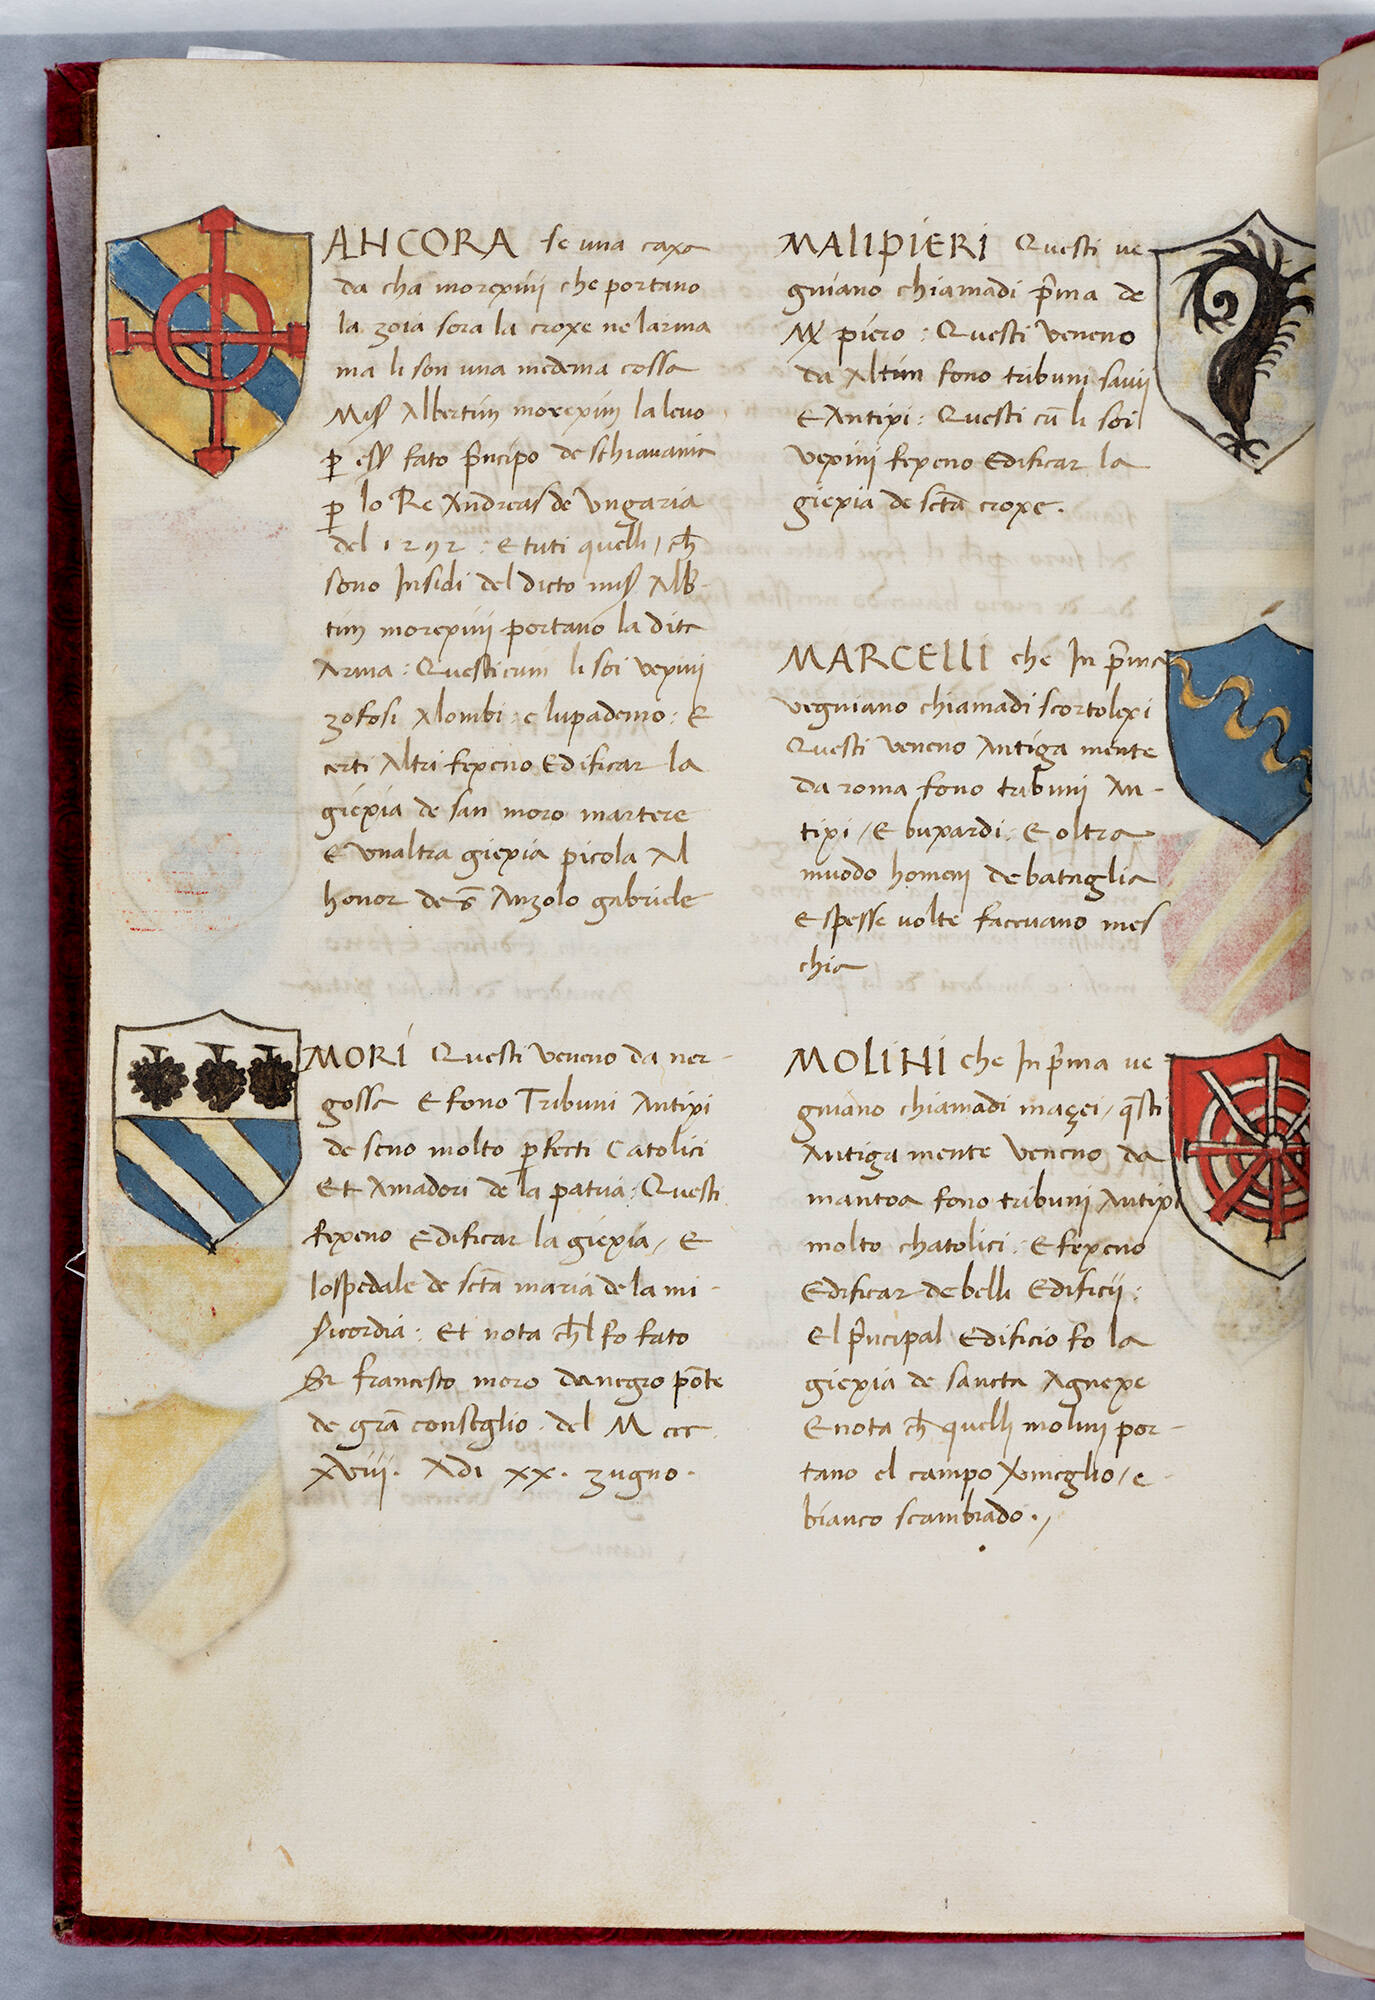 ANCORA se una caxa
da cha morexini che portano
la zoia sora la croxe ne larma
ma li son una medema cossa
Misẜ Albertin morexin la levo
ꝑ essẜ fato p̄ncipo de schiavania
ꝑ lo Re Andreas de Ungaria
del 1292 : E tuti quelli / ch̄
sono Insidi del dicto misẜ Alb-
tin morexini portano la dita
Arma : Questi cum li soi vexini
zofosi Alombi : e lupademo : E
certi Altri fexeno Edificar la
giexia de san moro martere
E unaltra giexia picola Al
honor de S̄ Anzolo gabriele
MORI Questi veneno da ner-
gossa E fono Tribuni Antixi
de seno molto ꝑfecti Catolici
Et Amadori de la patria : Questi
fexeno Edificar la giexia / E
lospedale de sctā maria de la mi-
sicordia : Et nota ch̄l fo fato
Sr francesco moro da negro pōte
de grā conseglio . del M ccc
xviii . Adi xx . zugno .
MALIPIERI Questi ve-
gniano chiamadi p̄ma de
Mx̄ piero : Questi veneno
da Altin fono tribuni savii
E Antixi : Questi cū li soi
vexini fexeno Edificar la
giexia de sctā croxe .
MARCELLI che In p̄ma
vegniano chiamadi scortolexi
Questi veneno Antiga mente
da roma fono tribuni An-
tixi / E buxardi : E oltra
muodo homeni de bataglia
E spesse volte facevano mes
chia
MOLINI che In p̄ma ve
gniano chiamadi maçei / q̄sti
Antiga mente veneno da
mantoa fono tribuni Antixi
molto chatolici : E fexeno
Edificar de belli Edificii :
El p̄ncipal Edificio fo la
giexia de sancta Agnexe
E nota ch̄ quelli molini por-
tano el campo Xvmeglio / e
bianco scambiado . /